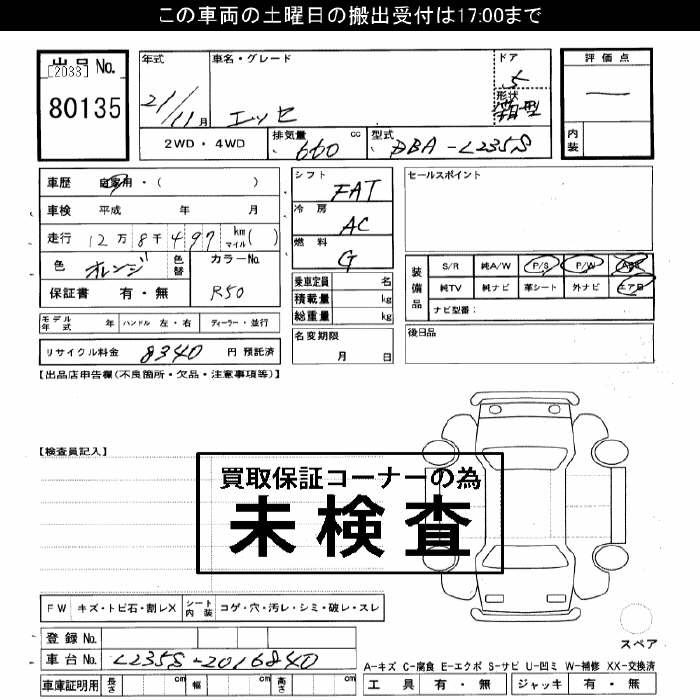 この車両の土曜日の搬出受付は17:00まで
出品No.
[2033]
80135
年式 車名・グレード ドア
21/11月 エッセ 5
形状 箱型
評価点
―
内装
2WD・4WD 排気量 660 cc 型式 DBA-L235S
車歴 自家用・( )
車検 平成 年 月
走行 12万8千497 km マイル ( )
色 オレンジ 色替 カラーNo. R50
保証書 有・無
モデル年式 年 ハンドル 左・右 ディーラー・並行
リサイクル料金 8340 円 預託済
シフト FAT
冷房 AC
燃料 G
乗車定員 名
積載量 kg
総重量 kg
名変期限 月 日
セールスポイント
装備品 S/R 純A/W P/S P/W ABS
純TV 純ナビ 革シート 外ナビ エアB
ナビ型番:
後日品
【出品店申告欄(不良箇所・欠品・注意事項等)】
【検査員記入】
買取保証コーナーの為
未検査
FW キズ・トビ石・割レX シート内装 コゲ・穴・汚レ・シミ・破レ・スレ
登録No.
車台No. L235S-2016840
車庫証明用 長さ cm 幅 cm 高さ cm
スペア
A-キズ C-腐食 E-エクボ S-サビ U-凹ミ W-補修 XX-交換済
工具 有・無 ジャッキ 有・無